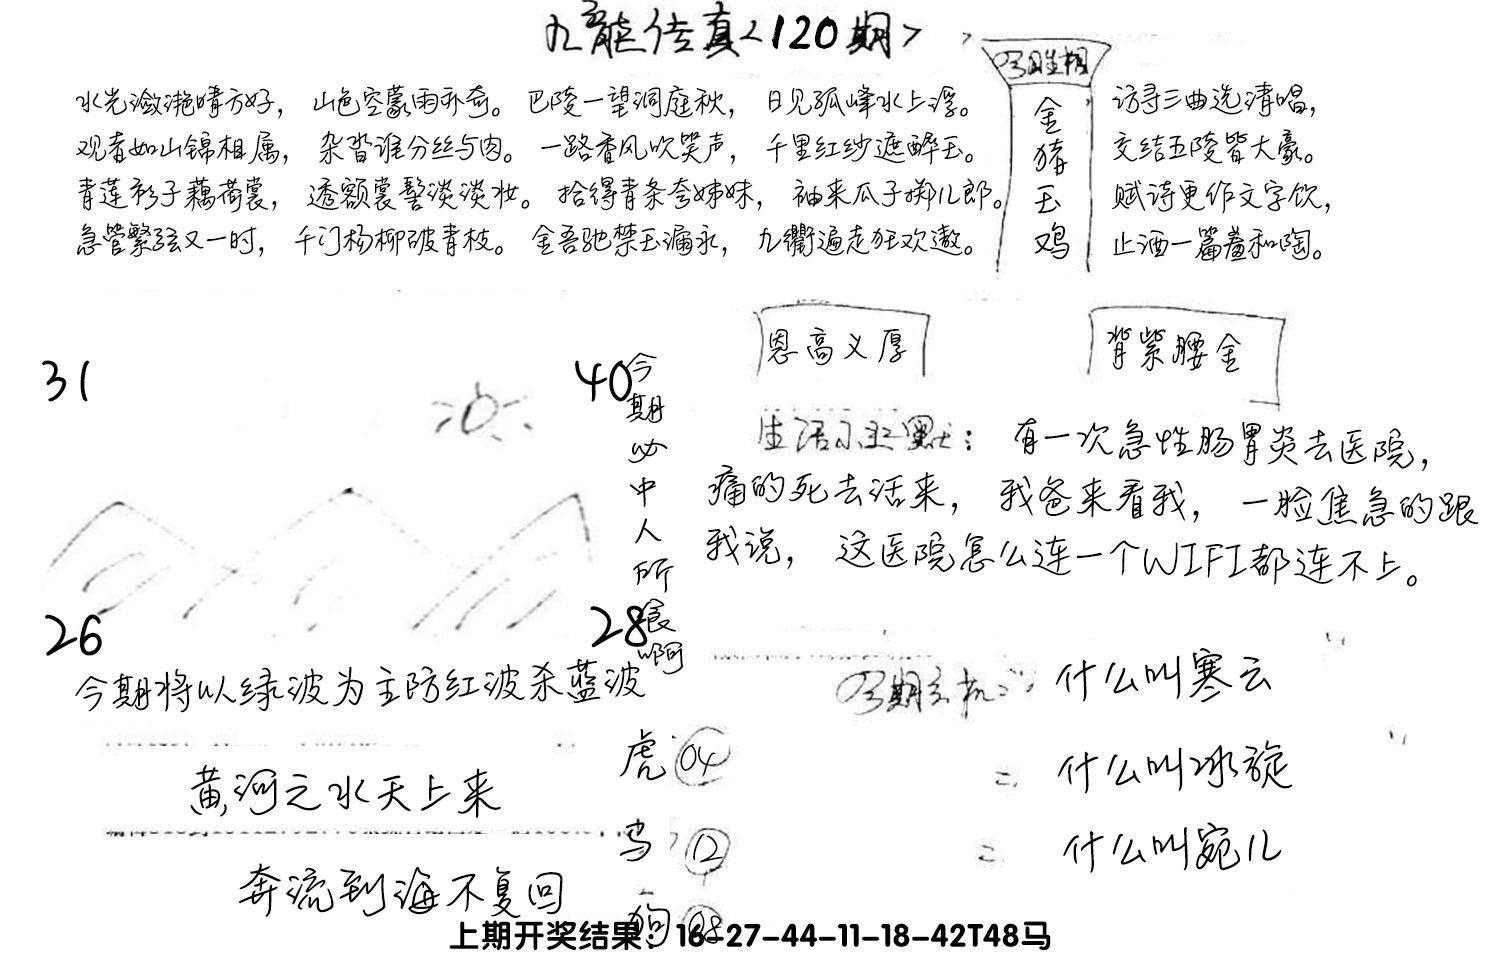 九龙传真<120期>
水光潋滟晴方好，山色空蒙雨亦奇。巴陵一望洞庭秋，日见孤峰水上浮。
观者如山锦相属，杂沓谁分丝与肉。一路香风吹笑声，千里红纱遮醉玉。
青莲衫子藕荷裳，透额裳髻淡淡妆。拾得青条夸姊妹，袖来瓜子掷儿郎。
急管繁弦又一时，千门杨柳破青枝。金吾驰禁玉漏永，九衢遍走狂欢遨。
今日生相
金
猪
玉
鸡
访寻三曲选清唱，
交结五陵皆大豪。
赋诗更作文字饮，
止酒一篇羞和陶。
恩高义厚
背紫腰金
31
40
26
28
今期必中人所食啊
生活小幽默：有一次急性肠胃炎去医院，
痛的死去活来，我爸来看我，一脸焦急的跟
我说，这医院怎么连一个WIFI都连不上。
今期将以绿波为主防红波杀蓝波
今期玄机：什么叫寒云
= 什么叫冰旋
= 什么叫宛儿
黄河之水天上来
奔流到海不复回
虎 04
马 12
狗 08
上期开奖结果：16-27-44-11-18-42T48马